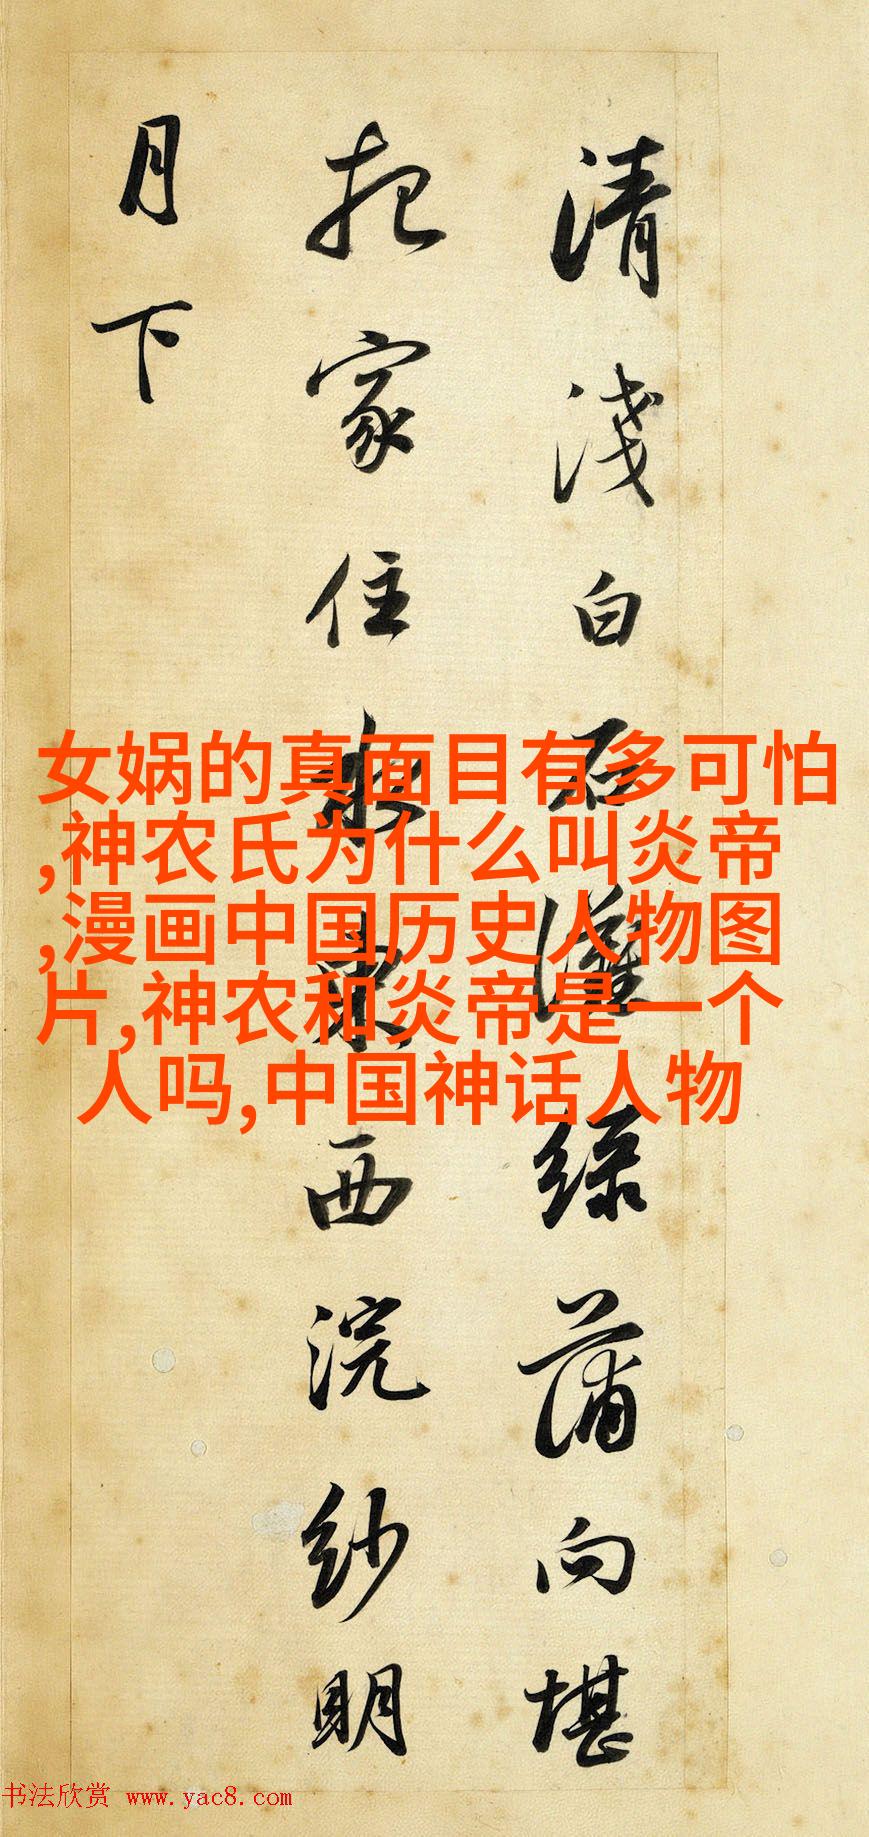 清淺白石灘綠蒲向堪
把家住水東西浣紗明
月下
女娲的真面目有多可怕
,神农氏为什么叫炎帝
,漫画中国历史人物图
片,神农和炎帝是一个
人吗,中国神话人物
书法欣赏 www.yac8.com